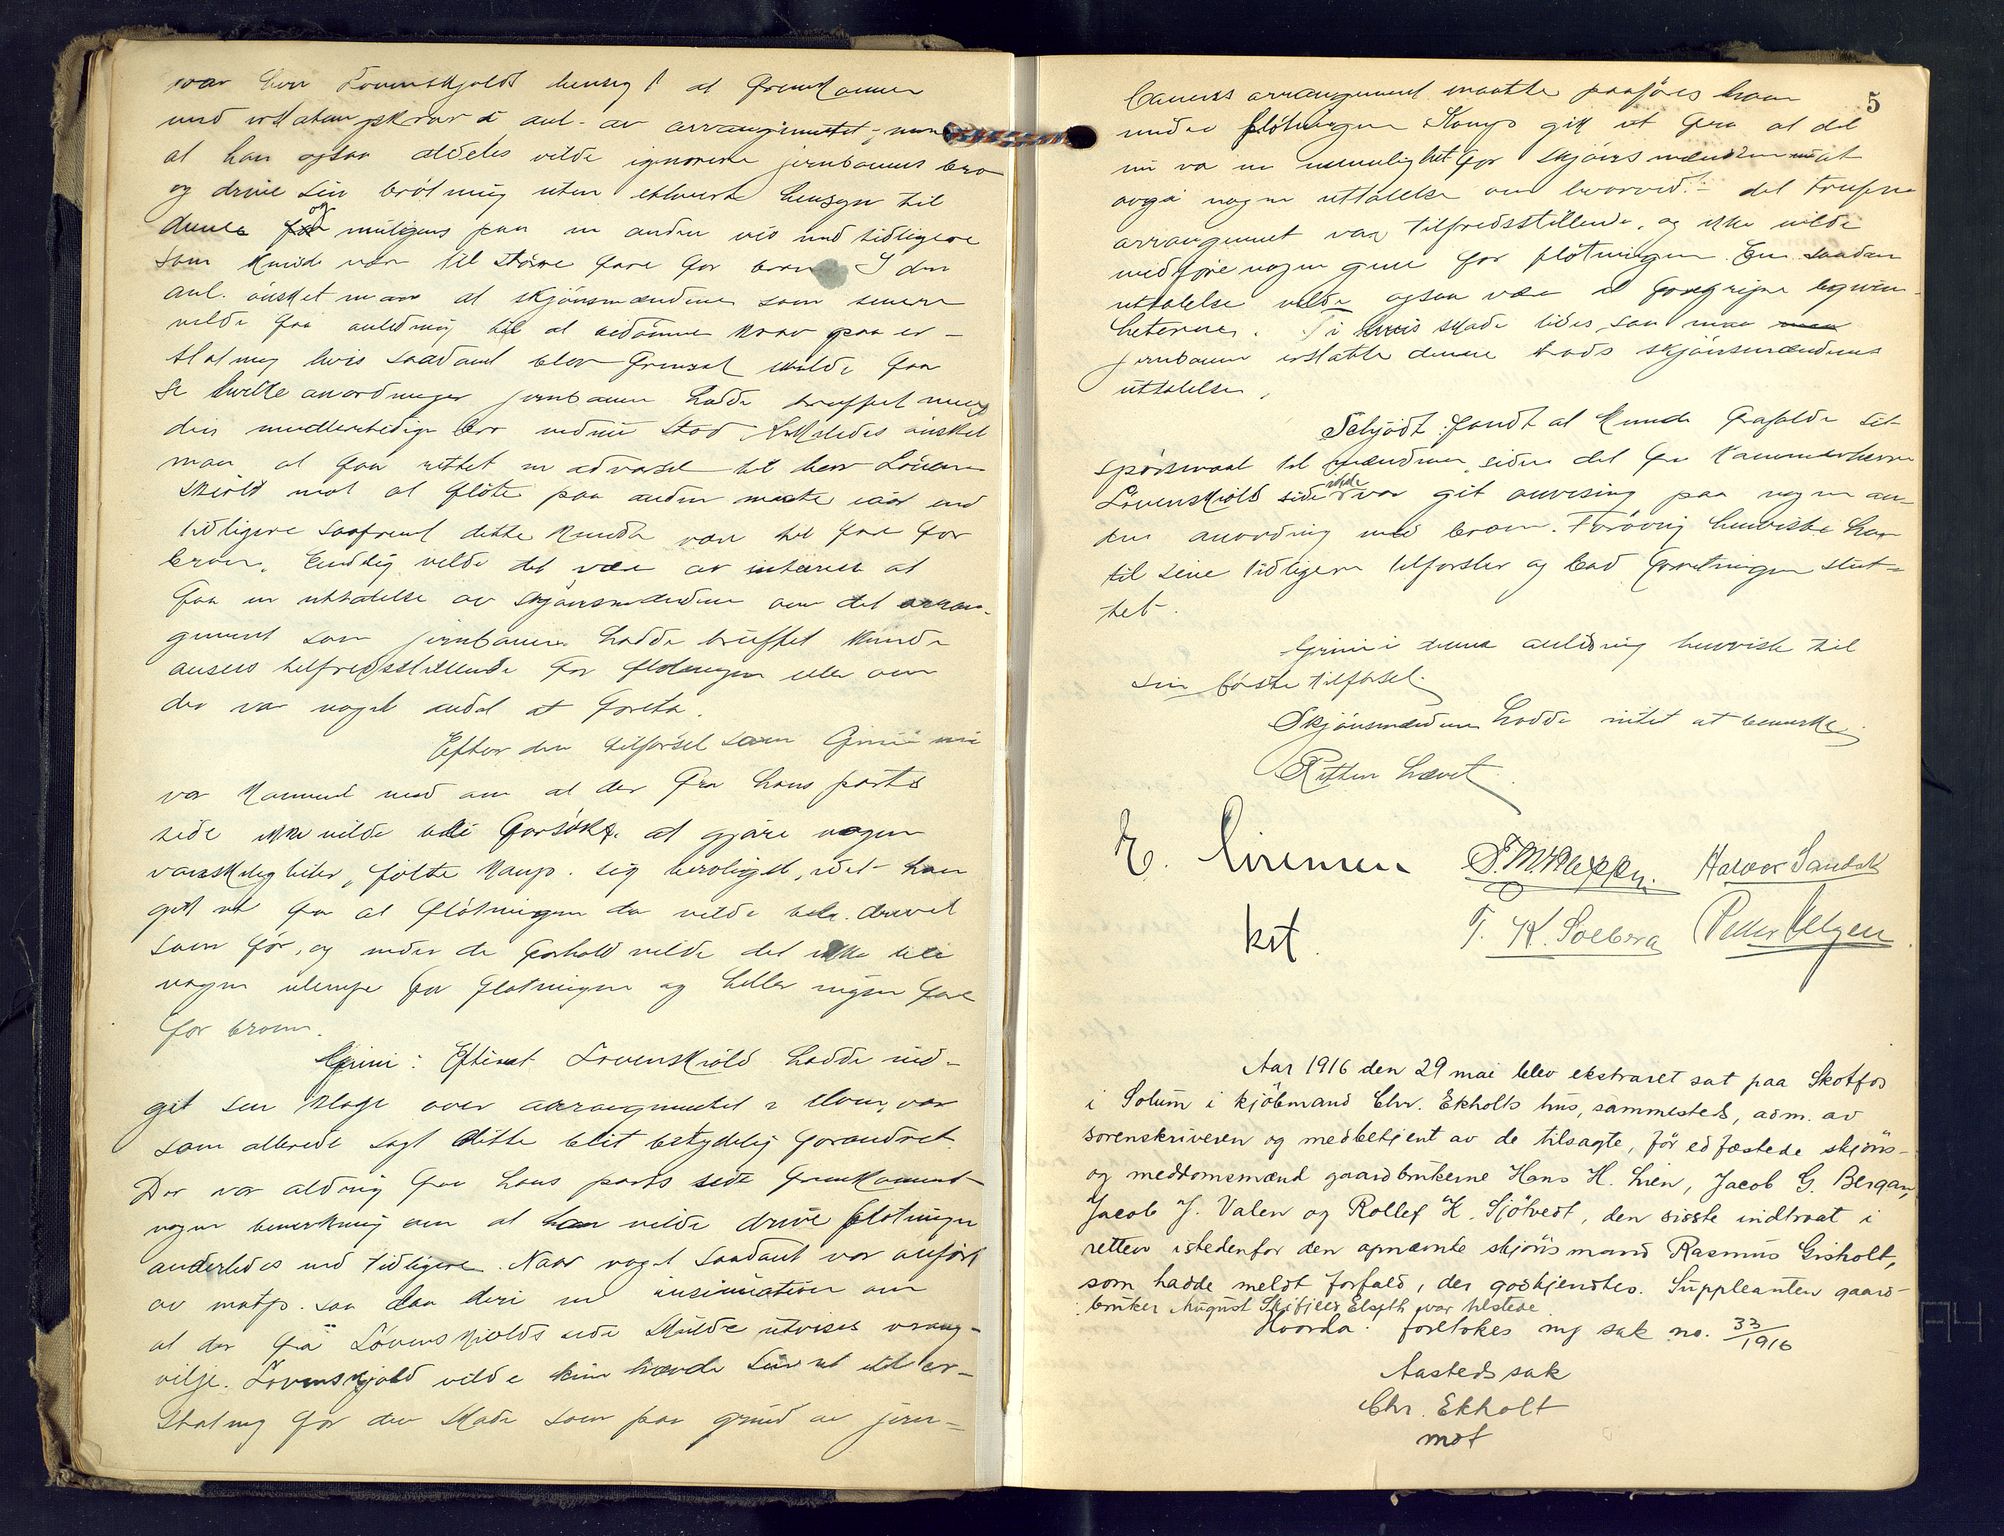 var herr Løvenskjolds hensigt at fremkomme
med erstatningskrav i anl. av arrangementet, men
at han ogsaa aldeles vilde ignorere jernbanens bro
og drive sin fløtning uten ethvert hensyn til
denne og muligens paa en anden vis end tidligere
som kunde være til større fare for broen. I den
anl. ønsket man at skjønsmændene som senere
vilde faa anledning til at bedømme krav paa er-
statning hvis saadant blev fremsat skulde faa
se hvilke anordninger jernbanen hadde truffet mens
den midlertidige bro endnu stod. Likeledes ønsket
man at faa rettet en advarsel til herr Løven-
skiold mot at fløte paa anden maate iaar end
tidligere saafremt dette kunde være til fare for
broen. Endelig vilde det være av interesse at
faa en uttalelse av skjønsmændene om det arran-
gement som jernbanen hadde truffet kunde
ansees tilfredsstillende for fløtningen eller om
der var noget andet at foreta.
Efter den tilførsel som Grini nu
var kommet med om at der fra hans parts
side ikke vilde bli forsøkt at gjøre nogen
vanskeligheter, følte Kamp. sig beroliget, idet han
gik ut fra at fløtningen da vilde bli drevet
som før, og under de forhold vilde det ikke bli
nogen ulempe for fløtningen og heller ingen fare
for broen.
Grini: Efterat Løvenskiold hadde ind-
git sin klage over arrangementet i elven, var
som allerede sagt dette blit betydelig forandret.
Der var aldrig fra hans parts side fremkommet
nogen bemerkning om at han vilde drive fløtningen
anderledes end tidligere. Naar noget saadant var anført
av motp. saa laa deri en insinuation om
at der fra Løvenskiolds side skulde utvises vrang-
vilje. Løvenskjold vilde kun hævde sin ret til er-
statning for den skade som paa grund av jern-
5
banens arrangement maatte paaføres ham
under fløtningen. Kamp. gik ut fra at det
nu var en umulighet for skjønsmændene at
avgi nogen uttalelse om hvorvidt det trufne
arrangement var tilfredsstillende, og ikke vilde
medføre nogen gene for fløtningen. En saadan
uttalelse vilde ogsaa være at foregripe begiven-
heterne. Ti hvis skade lides, saa maa
jernbanen erstatte denne trods skjønsmændenes
uttalelse.
Schjødt fandt at kunde frafalde sit
spørsmaal til mændene, siden det fra kammerherre
Løvenskiolds side ikke var git anvisning paa nogen an-
den anordning med broen. Forøvrig henviste han
til sine tidligere tilførsler og bad forretningen slut-
tet.
Grini i denne anledning henviste til
sin første tilførsel.
Skjønsmændene hadde intet at bemerke.
Retten hævet.
E. Sirensen
kst.
Halvor Sandak
T. K. Solberg
Aar 1916 den 29 mai blev ekstraret sat paa Skotfos
i Solum i kjøbmand Chr. Ekholts hus, sammesteds, adm. av
sorenskriveren og medbetjent av de tilsagte, før edfæstede skjøns-
og meddomsmænd gaardbrukerne Hans H. Lien, Jacob G. Bergan,
Jacob J. Valen og Rollef K. Sjøtvedt, den sisste indtraat i
retten istedenfor den opnævnte skjønsmand Rasmus Grisholt,
som hadde meldt forfald, der godkjendtes. Suppleanten gaard-
bruker August Elseth var tilstede.
Hvorda foretokes ny sak no. 33/1916
Aastedssak
Chr. Ekholt
mot